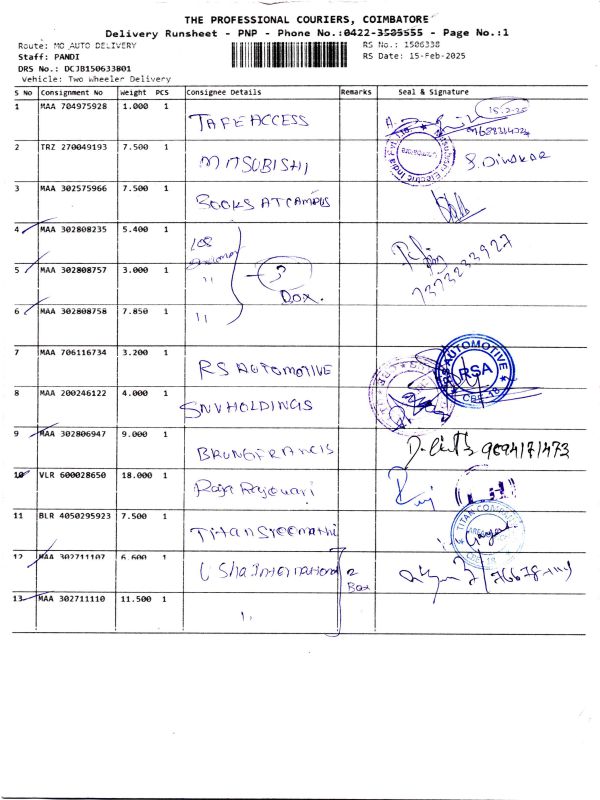 THE PROFESSIONAL COURIERS, COIMBATORE
Delivery Runsheet - PNP - Phone No.:0422-3535555 - Page No.:1
Route: MC AUTO DELIVERY
RS No.: 1506338
Staff: PANDI
RS Date: 15-Feb-2025
DRS No.: DCJB150633801
Vehicle: Two Wheeler Delivery
S No Consignment No Weight PCS Consignee Details Remarks Seal & Signature
1 MAA 704975928 1.000 1 TAFE ACCESS
15-2-25
2 TRZ 270049193 7.500 1 MITSUBISHI S. Dinakar
3 MAA 302575966 7.500 1 BOOKS AT CAMPUS
4 MAA 302808235 5.400 1
5 MAA 302808757 3.000 1 " 3 Dox.
7373233927
6 MAA 302808758 7.850 1 "
7 MAA 706116734 3.200 1 RS AUTOMOTIVE
RS AUTOMOTIVE RSA CBE-18
8 MAA 200246122 4.000 1 SNV HOLDINGS
9 MAA 302806947 9.000 1 9894171473
10 VLR 600028650 18.000 1 Raja
11 BLR 4050295923 7.500 1 Titan
TITAN COMPANY CBE-18
12 MAA 302711107 6.600 1 Usha International 2 Box
13 MAA 302711110 11.500 1 "